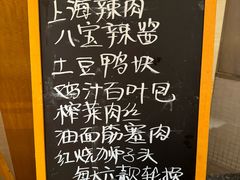 上海辣肉
八宝辣酱
土豆鸭块
鸡汁百叶包
榨菜肉丝
油面筋塞肉
红烧狮子头
每天六款轮换